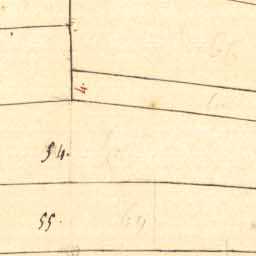 4.
54.
55.